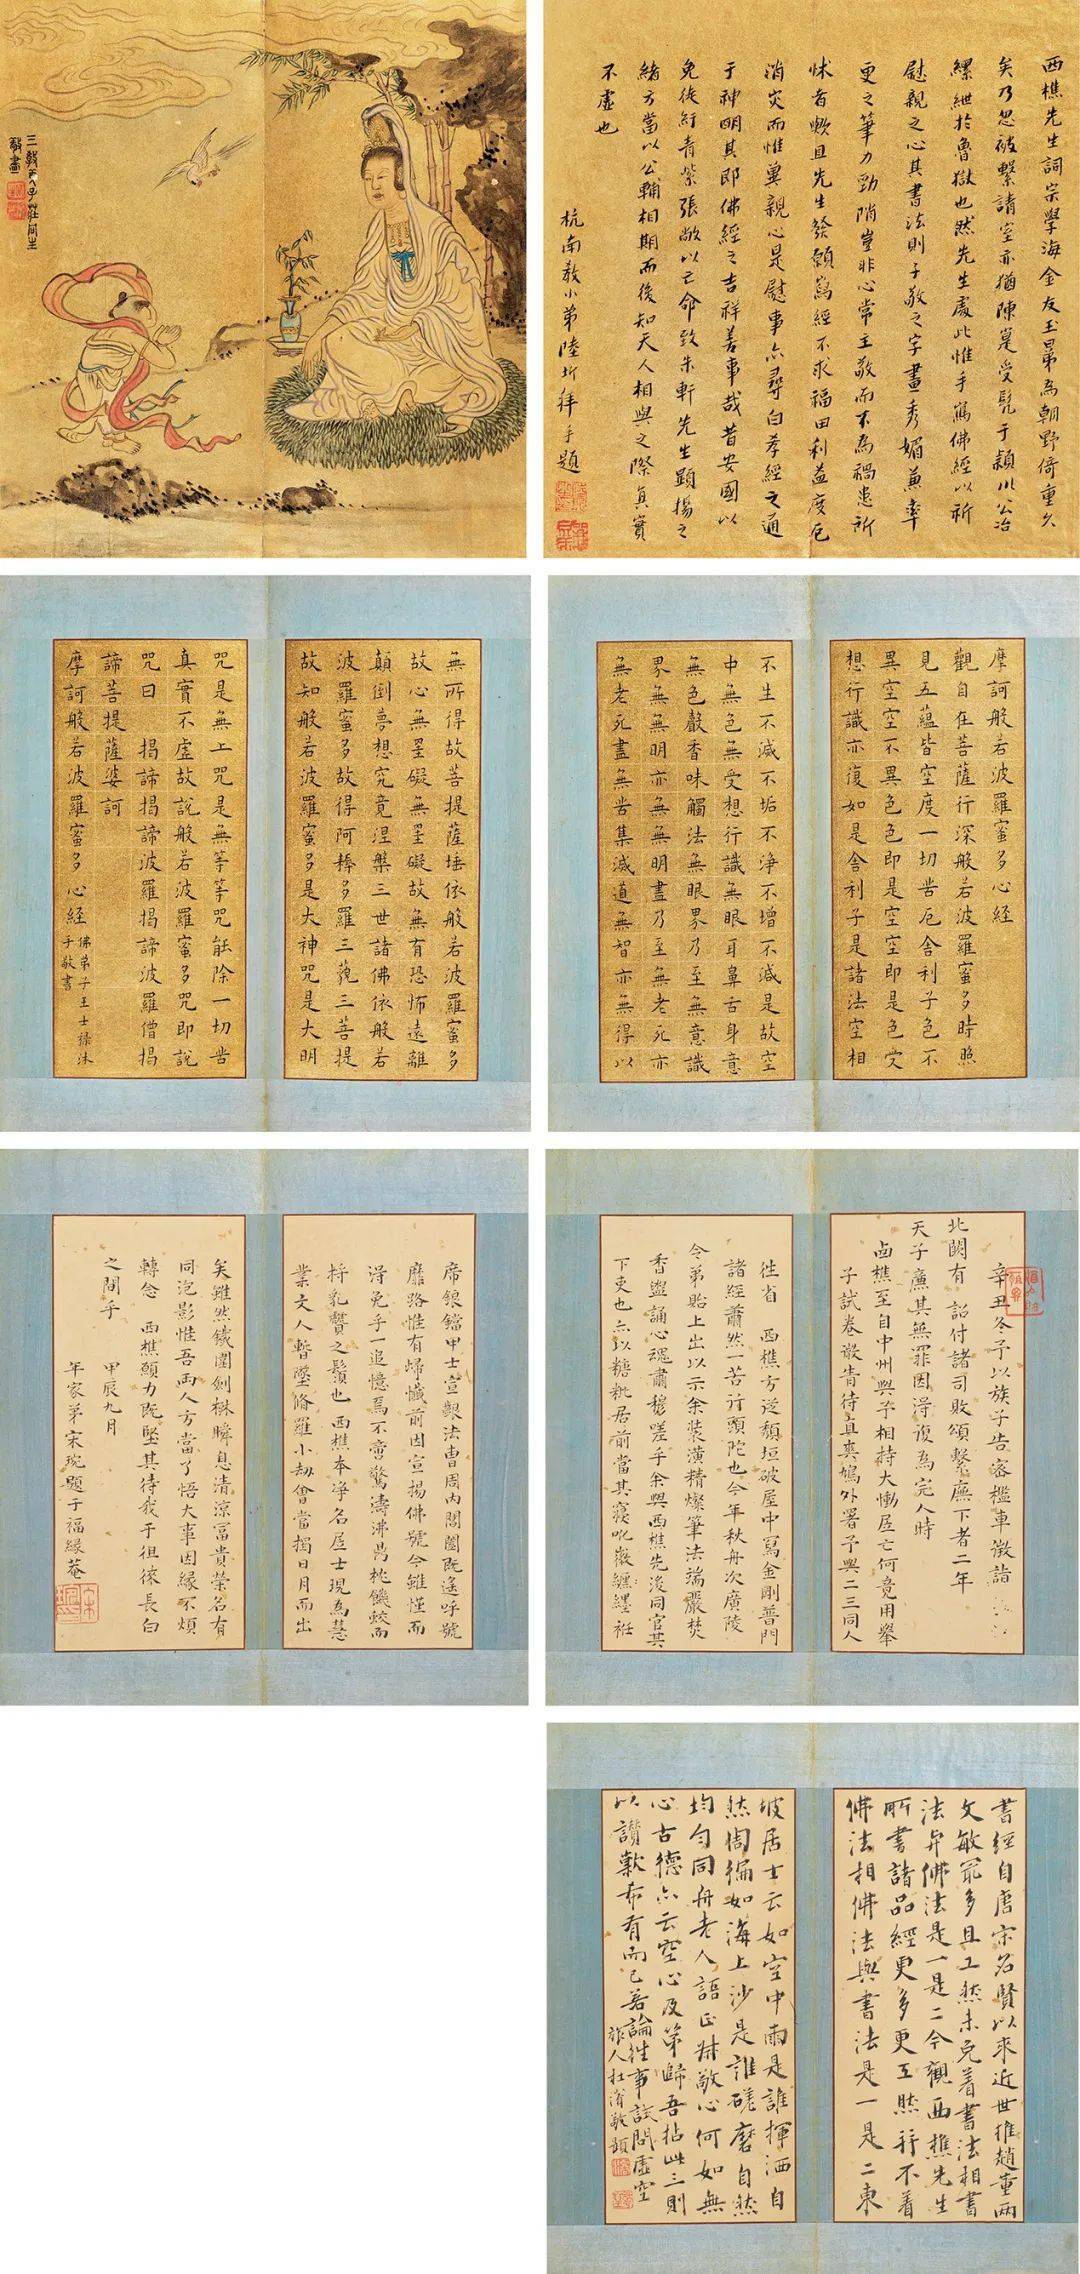 三教弟子莊冏生
敬畫
西樵先生詞宗學海金友玉昆為朝野倚重久
矣乃忽被繫請室亦猶陳寔受髡于潁川公冶
縲紲於魯獄也然先生處此惟手寫佛經以祈
慰親之心其書法則子敬之字畫秀媚兼率
更之筆力勁陗豈非心常主敬而不為禍患所
怵者歟且先生發願寫經不求福田利益度厄
消災而惟冀親心是慰事亦尋白孝經之通
于神明其即佛經之吉祥善事哉昔安國以
免徒紆青紫張敞以亡命致朱軒先生顯揚之
緒方當以公輔相期而後知天人相與之際真實
不虛也
杭南教小弟陸圻拜手題
摩訶般若波羅蜜多心經
觀自在菩薩行深般若波羅蜜多時照
見五蘊皆空度一切苦厄舍利子色不
異空空不異色色即是空空即是色受
想行識亦復如是舍利子是諸法空相
不生不滅不垢不淨不增不減是故空
中無色無受想行識無眼耳鼻舌身意
無色聲香味觸法無眼界乃至無意識
界無無明亦無無明盡乃至無老死亦
無老死盡無苦集滅道無智亦無得以
無所得故菩提薩埵依般若波羅蜜多
故心無罣礙無罣礙故無有恐怖遠離
顛倒夢想究竟涅槃三世諸佛依般若
波羅蜜多故得阿耨多羅三藐三菩提
故知般若波羅蜜多是大神咒是大明
咒是無上咒是無等等咒能除一切苦
真實不虛故說般若波羅蜜多咒即說
咒曰 揭諦揭諦波羅揭諦波羅僧揭
諦菩提薩婆訶
摩訶般若波羅蜜多心經
佛弟子王士祿沐
手敬書
辛丑冬予以族子告密檻車徵詣
北闕有 詔付諸司敗頌繫廡下者二年
天子廉其無罪因得復為完人時
西樵至自中州與予相持大慟屋亡何竟用舉
子試卷散眚待直爽鳩外署予與二三同人
往省 西樵方從頹垣破屋中寫金剛普門
諸經蕭然一苦行頭陀也今年秋舟次廣陵
令弟貽上出以示余裝潢精燦筆法端嚴焚
香盥誦心魂肅穆嗟乎余與西樵先後同官其
下吏也亦以糖粃居前當其寢吪嶽纏纆衽
席鋃鐺甲士宣艱法曹周內閶闔既遙呼號
靡路惟有歸懺前因宣揚佛號今雖僅而
淂免乎一追憶焉不啻驚濤沸曷枕饑蛟而
捋乳贙之鬚也西樵本淨名居士現為慧
業文人暫墜脩羅小劫會當揭日月而出
矣雖然鐵圍劍樹瞬息清涼富貴榮名有
同泡影惟吾兩人方當了悟大事因緣不煩
轉念 西樵願力既堅其待我于徂徠長白
之間乎 甲辰九月
年家弟宋琬題于福緣菴
書經自唐宋名賢以來近世推趙董兩
文敏最多且工然未免着書法相書
法與佛法是一是二今觀西樵先生
所書諸品經更多更工然并不着
佛法相佛法與書法是一是二東
坡居士云如空中雨是誰揮洒自
然周徧如海上沙是誰磋磨自然
均勻同舟老人語正犮敵心何如無
心古德亦云空心及第歸吾拈此三則
以讚歎希有而已若論往事試問虛空
旅人杜濬敬題